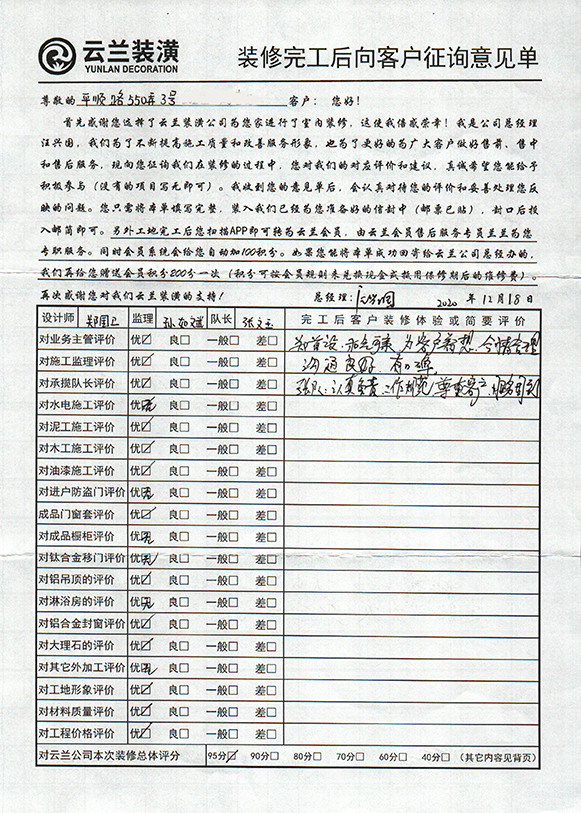 云兰装潢
YUNLAN DECORATION
装修完工后向客户征询意见单
尊敬的 平顺路550弄3号 客户：您好！
首先感谢您选择了云兰装潢公司为您家进行了室内装修，这使我倍感荣幸！我是公司总经理
汪兴国，我们为了不断提高施工质量和改善服务形象，也为了更好的为广大客户做好售前、售中
和售后服务，现向您征询我们在装修的过程中，您对我们的对应评价和建议，真诚希望您能给予
积极参与（没有的项目写无即可）。我收到您的意见单后，会认真对待您的评价和妥善处理您反
映的问题。您只需将本单填写完整，装入我们已经为您准备好的信封中（邮票已贴），封口后投
入邮筒即可。另外工地完工后您扫描APP即可转为云兰会员，由云兰会员售后服务专员兰兰为您
专职服务。同时会员系统会给您自动加100积分。如果您能将本单成功回寄给云兰公司总经办的，
我们再给您赠送会员积分200分一次（积分可按会员规则来兑换现金或换用保修期后的维修费）。
再次感谢您对我们云兰装潢的支持！ 总经理： 2020 年 12 月 18 日
设计师 郑国卫 监理 孙如斌 队长 张文玉 完工后客户装修体验或简要评价
对业务主管评价 优☑ 良□ 一般□ 差□
对施工监理评价 优☑ 良□ 一般□ 差□ 沟通良好
对承揽队长评价 优☑ 良□ 一般□ 差□ 认真负责 工作规范 尊重客户
对水电施工评价 优无 良□ 一般□ 差□
对泥工施工评价 优☑ 良□ 一般□ 差□
对木工施工评价 优☑ 良□ 一般□ 差□
对油漆施工评价 优☑ 良□ 一般□ 差□
对进户防盗门评价 优无 良□ 一般□ 差□
成品门窗套评价 优☑ 良□ 一般□ 差□
对成品橱柜评价 优无 良□ 一般□ 差□
对钛合金移门评价 优无 良□ 一般□ 差□
对铝吊顶的评价 优☑ 良□ 一般□ 差□
对淋浴房的评价 优无 良□ 一般□ 差□
对铝合金封窗评价 优☑ 良□ 一般□ 差□
对大理石的评价 优☑ 良□ 一般□ 差□
对其它外加工评价 优无 良□ 一般□ 差□
对工地形象评价 优☑ 良□ 一般□ 差□
对材料质量评价 优☑ 良□ 一般□ 差□
对工程价格评价 优☑ 良□ 一般□ 差□
对云兰公司本次装修总体评分 95分☑ 90分□ 80分□ 70分□ 60分□ 40分□ （其它内容见背页）